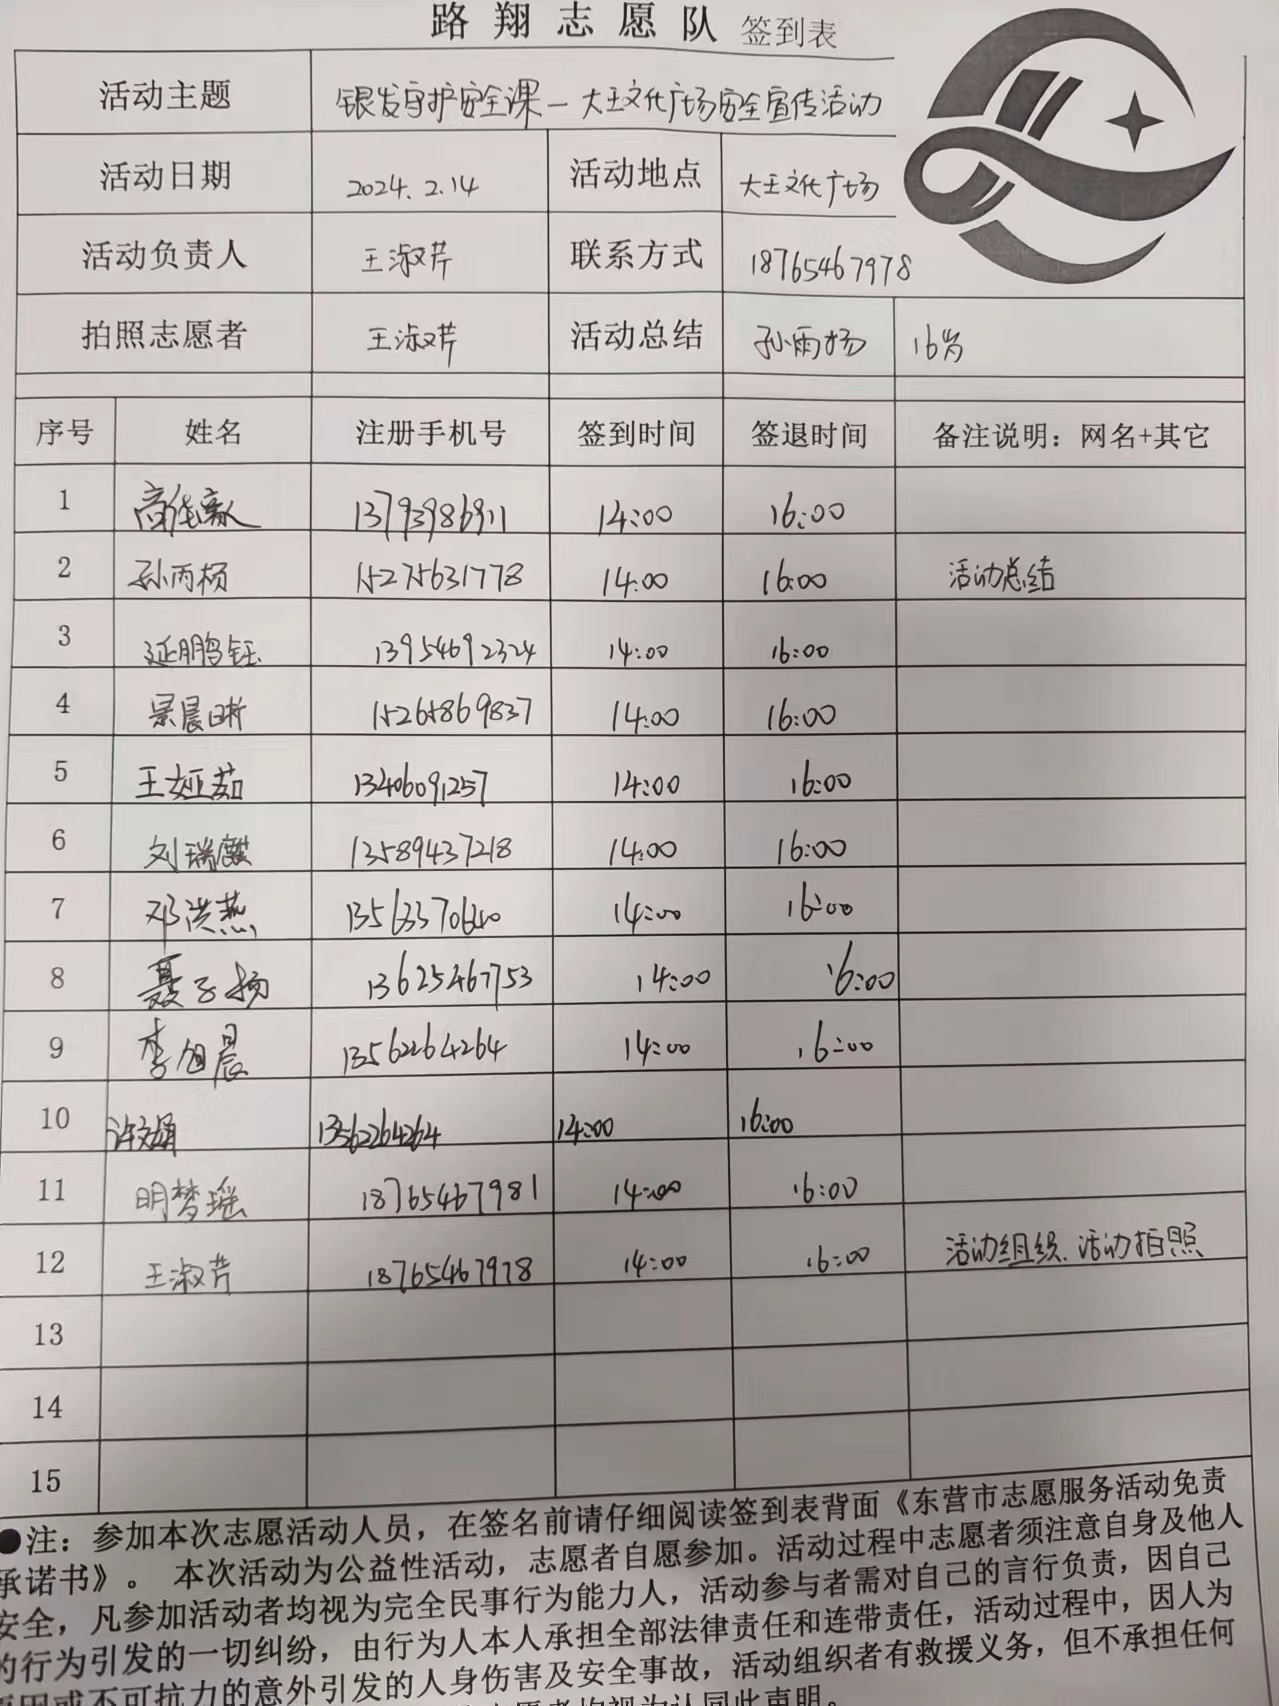 路翔志愿队 签到表
活动主题 银发守护安全课—大王文化广场安全宣传活动
活动日期 2024.2.14 活动地点 大王文化广场
活动负责人 王淑芹 联系方式 18765467978
拍照志愿者 王淑芹 活动总结 孙雨扬 16岁
序号 姓名 注册手机号 签到时间 签退时间 备注说明：网名+其它
1 13793986911 14:00 16:00
2 孙丙杨 15275631778 14:00 16:00 活动总结
3 延鹏钰 13954692324 14:00 16:00
4 景晨昕 15265869837 14:00 16:00
5 王娅茹 13406091257 14:00 16:00
6 刘瑞麒 13589437218 14:00 16:00
7 邓洪燕 13563370640 14:00 16:00
8 聂子扬 13625467753 14:00 16:00
9 李旭晨 13562264264 14:00 16:00
10 许文娟 13562264264 14:00 16:00
11 明梦瑶 18765467981 14:00 16:00
12 王淑芹 18765467978 14:00 16:00 活动组织、活动拍照
13
14
15
●注：参加本次志愿活动人员，在签名前请仔细阅读签到表背面《东营市志愿服务活动免责
承诺书》。 本次活动为公益性活动，志愿者自愿参加。活动过程中志愿者须注意自身及他人
安全，凡参加活动者均视为完全民事行为能力人，活动参与者需对自己的言行负责，因自己
的行为引发的一切纠纷，由行为人本人承担全部法律责任和连带责任，活动过程中，因人为
原因或不可抗力的意外引发的人身伤害及安全事故，活动组织者有救援义务，但不承担任何
志愿者均视为认同此声明。